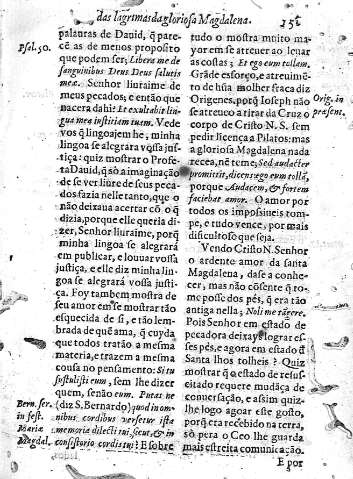 das lagrimas da gloriosa Magdalena.
Psal. 50.
palauras de Dauid, q̃ pare-
cẽ as de menos proposito
que podem ser; Libera me de
sanguinibus Deus Deus salutis
meæ. Senhor liuraime de
meus pecados; e então que
nacera dahi? Et exultabit lin-
gua mea iustitiam tuam. Vede
vos q̃ lingoajem he, minha
lingoa se alegrará vossa jus-
tiça: quiz mostrar o Profe-
ta Dauid, q̃ só a imaginação
de se ver liure de seus peca-
dos fazia nelle tanto, que o
não deixaua acertar cõ o q̃
dizia, porque elle queria di-
zer, Senhor liuraime, porq̃
minha lingoa se alegrará
em publicar, e louuar vossa
justiça, e elle diz minha lin-
goa se alegrará vossa justi-
ça. Foy tambem mostra de
seu amor em se mostrar tão
esquecida de si, e tão lem-
brada de quẽ ama, q̃ cuyda
que todos tratão a mesma
materia, e trazem a mesma
cousa no pensamento: Si tu
sustulisti eum, sem lhe dizer
quem, senão eum. Putas ne
Bern. ser.
in fest.
Mariæ
Magdal.
(diz S. Bernardo) quod in om-
nibus cordibus versetur ista
memoria dilecti tui, sicut, & in
consistorio cordis tui? E sobre
tudo o mostra muito ma-
yor em se atreuer ao leuar
as costas; Et ego eum tollam.
Grãde esforço, e atreuimẽ-
to de hũa molher fraca diz
Origenes, porq̃ Ioseph não
Orig. in
præsent.
se atreueo a tirar da Cruz o
corpo de Cristo N. S. sem
pedir licença a Pilatos: mas
a gloriosa Magdalena nada
recea, nẽ teme; Sed audacter
promittit, dicens ego eum tollã,
porque Audacem, & fortem
faciebat amor. O amor por
todos os impossiueis rom-
pe, e tudo vence, por mais
dificultoso que seja.
Vendo Cristo N. Senhor
o ardente amor da santa
Magdalena, dase a conhe-
cer, mas não cõsente q̃ to-
me posse dos pés, q̃ era tão
antiga nella; Noli me tãgere.
Pois Senhor em estado de
pecadora deixays lograr es-
ses pés, e agora em estado d̃
Santa lhos tolheis? Quiz
mostrar q̃ o estado de resus-
citado requere mudãça de
conuersação, e assim quiz-
lhe logo agoar este gosto,
porq̃ era recebido na terra,
só pera o Ceo lhe guarda
mais estreita comunicação.
E por